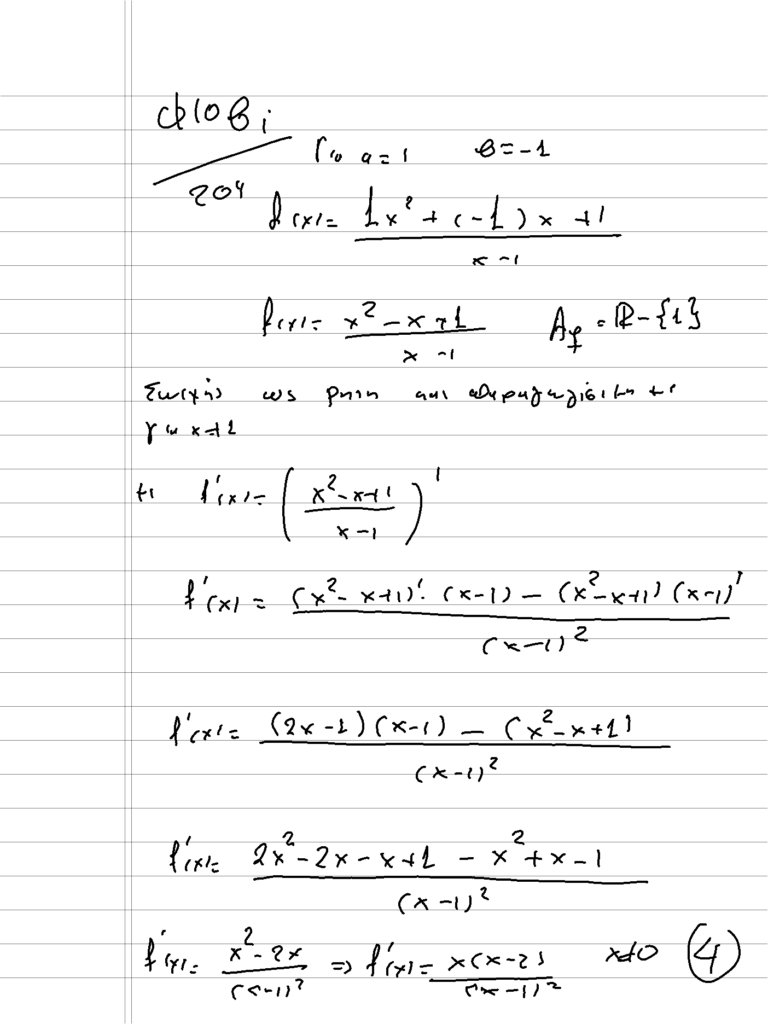 Φ10 βi
204
Για α = 1 β = -1
f(x) = 1x² + (-1)x + 1 / x - 1
f(x) = x² - x + 1 / x - 1 A_f = ℝ - {1}
Συνεχής ως ρητή και παραγωγίσιμη με
για x ≠ 1
με f'(x) = ( x² - x + 1 / x - 1 )'
f'(x) = (x² - x + 1)' · (x - 1) - (x² - x + 1)(x - 1)' / (x - 1)²
f'(x) = (2x - 1)(x - 1) - (x² - x + 1) / (x - 1)²
f'(x) = 2x² - 2x - x + 1 - x² + x - 1 / (x - 1)²
f'(x) = x² - 2x / (x - 1)² ⇒ f'(x) = x(x - 2) / (x - 1)² x≠0 4